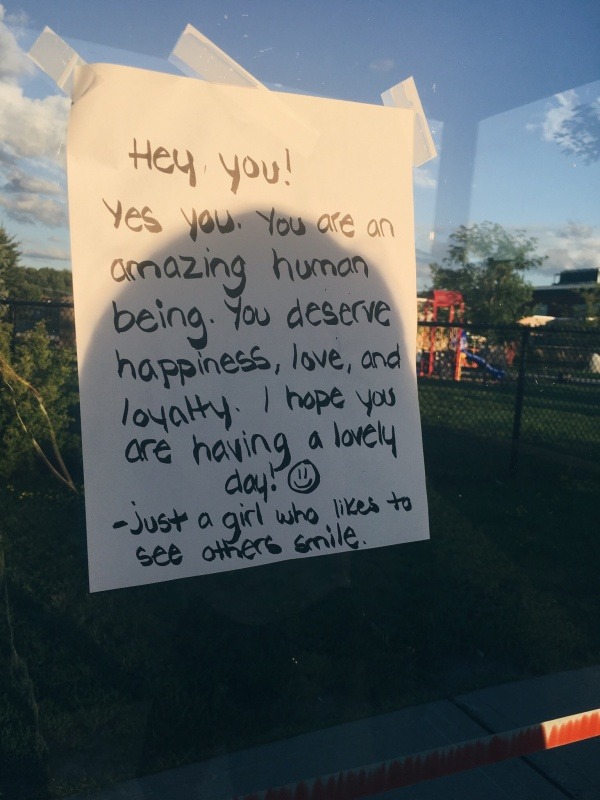 Hey, you!
Yes you. You are an
amazing human
being. You deserve
happiness, love, and
loyalty. I hope you
are having a lovely
day! ☺
-just a girl who likes to
see others smile.